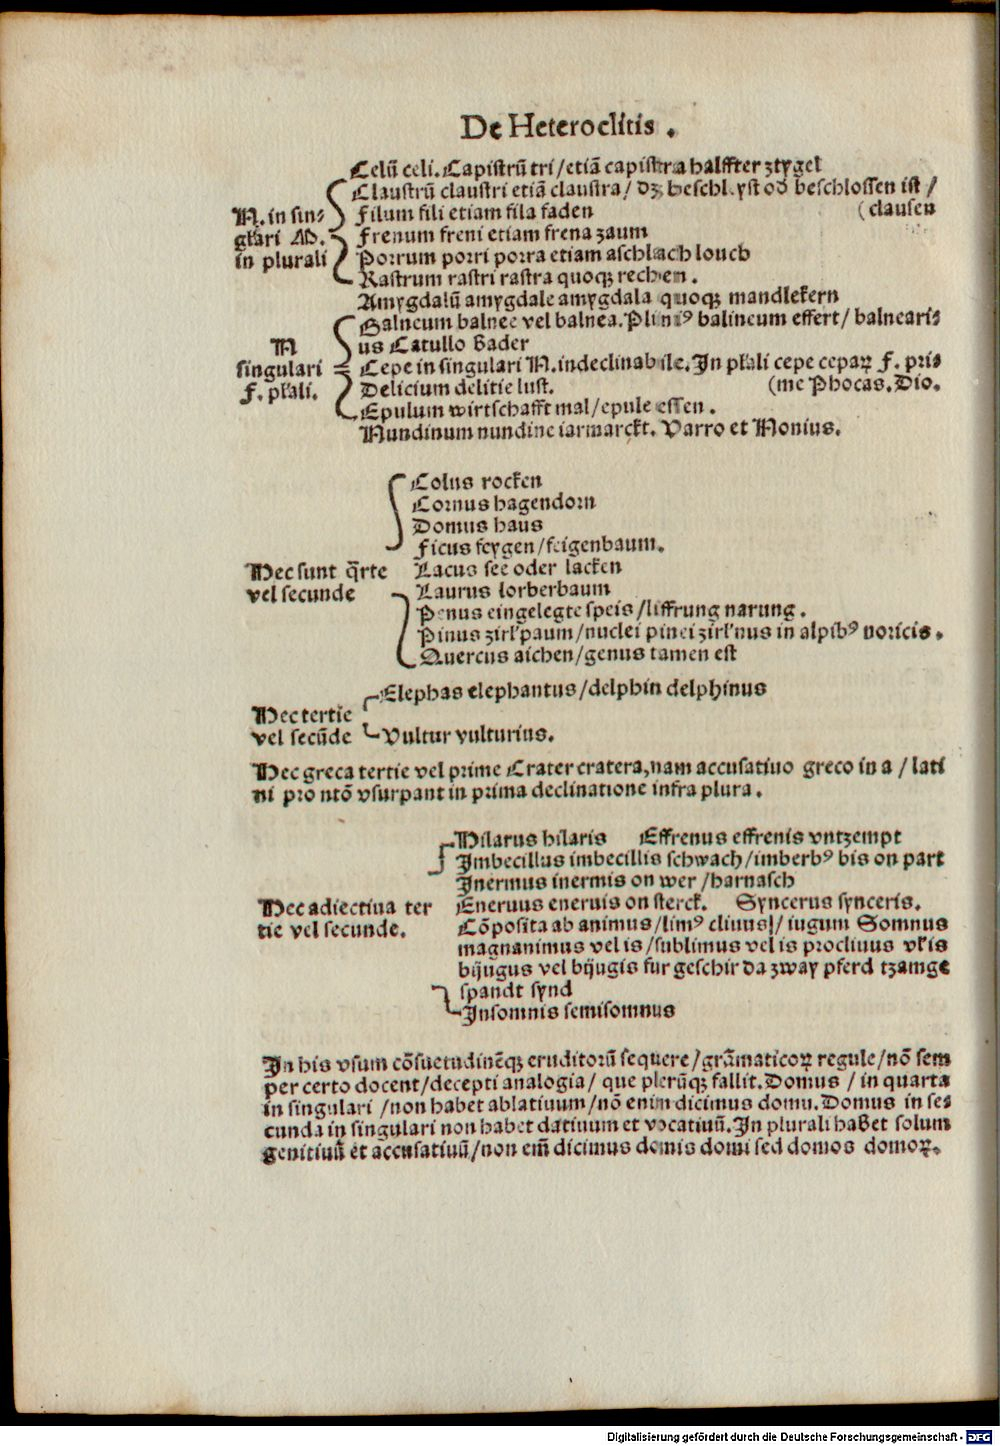 De Heteroclitis .
Celũ celi. Capistrũ tri / etiã capistra halffter ztygel
Claustrũ claustri etiã claustra / dz beschl yst od beschlossen ist /
N. in sin⸗ Filum fili etiam fila faden (clausen
glari M. Frenum freni etiam frena zaum
in plurali Porrum porri porra etiam aschlach louch
Rastrum rastri rastra quoqꝫ rechen .
Amygdalũ amygdale amygdala quoqꝫ mandlekern
Balneum balnee vel balnea. Pliniꝰ balineum effert / balneari⸗
N us Catullo Bader
singulari Cepe in singulari N. indeclinabile. In plali cepe cepaꝝ F. pri⸗
F. plali. Delicium delitie lust. (me Phocas. Dio.
Epulum wirtschafft mal / epule essen .
Nundinum nundine iarmarckt. Varro et Nonius.
Colus rocken
Cornus hagendorn
Domus haus
Ficus feygen / feigenbaum.
Hec sunt q̃rte Lacus see oder lacken
vel secunde Laurus lorberbaum
Penus eingelegte speis / liffrung narung .
Pinus zirl'paum / nuclei pinei zirl'nus in alpibꝰ noricis .
Quercus aichen / genus tamen est
Elephas elephantus / delphin delphinus
Hec tertie
vel secũde Vultur vulturius.
Hec greca tertie vel prime Crater cratera, nam accusatiuo greco in a / lati
ni pro ntõ vsurpant in prima declinatione infra plura .
Hilarus hilaris Effrenus effrenis vntzempt
Imbecillus imbecillis schwach / imberbꝰ bis on part
Inermus inermis on wer / harnasch
Hec adiectiua ter Eneruus eneruis on sterck. Syncerus synceris.
tie vel secunde. Cõposita ab animus / limꝰ cliuus / iugum Somnus
magnanimus vel is / sublimus vel is procliuus vl'is
bijugus vel bijugis fur geschir da zway pferd tzamge
spandt synd
Insomnis semisomnus
In his vsum cõsuetudinẽqꝫ eruditorũ sequere / grãmaticoꝝ regule / nõ sem
per certo docent / decepti analogia / que plerũqꝫ fallit. Domus / in quarta
in singulari / non habet ablatiuum / nõ enim dicimus domu. Domus in se⸗
cunda in singulari non habet datiuum et vocatiuũ. In plurali habet solum
genitiuũ et accusatiuũ / non em̃ dicimus domis domi sed domos domoꝝ.
Digitalisierung gefördert durch die Deutsche Forschungsgemeinschaft - DFG